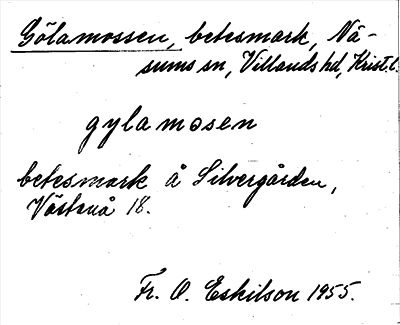 Gölamossen, betesmark, Nä-
sums sn, Villands hd, Krist.l.
gylamosen
betesmark å Silvergården,
Västanå 18.
Fr. O. Eskilson 1955.